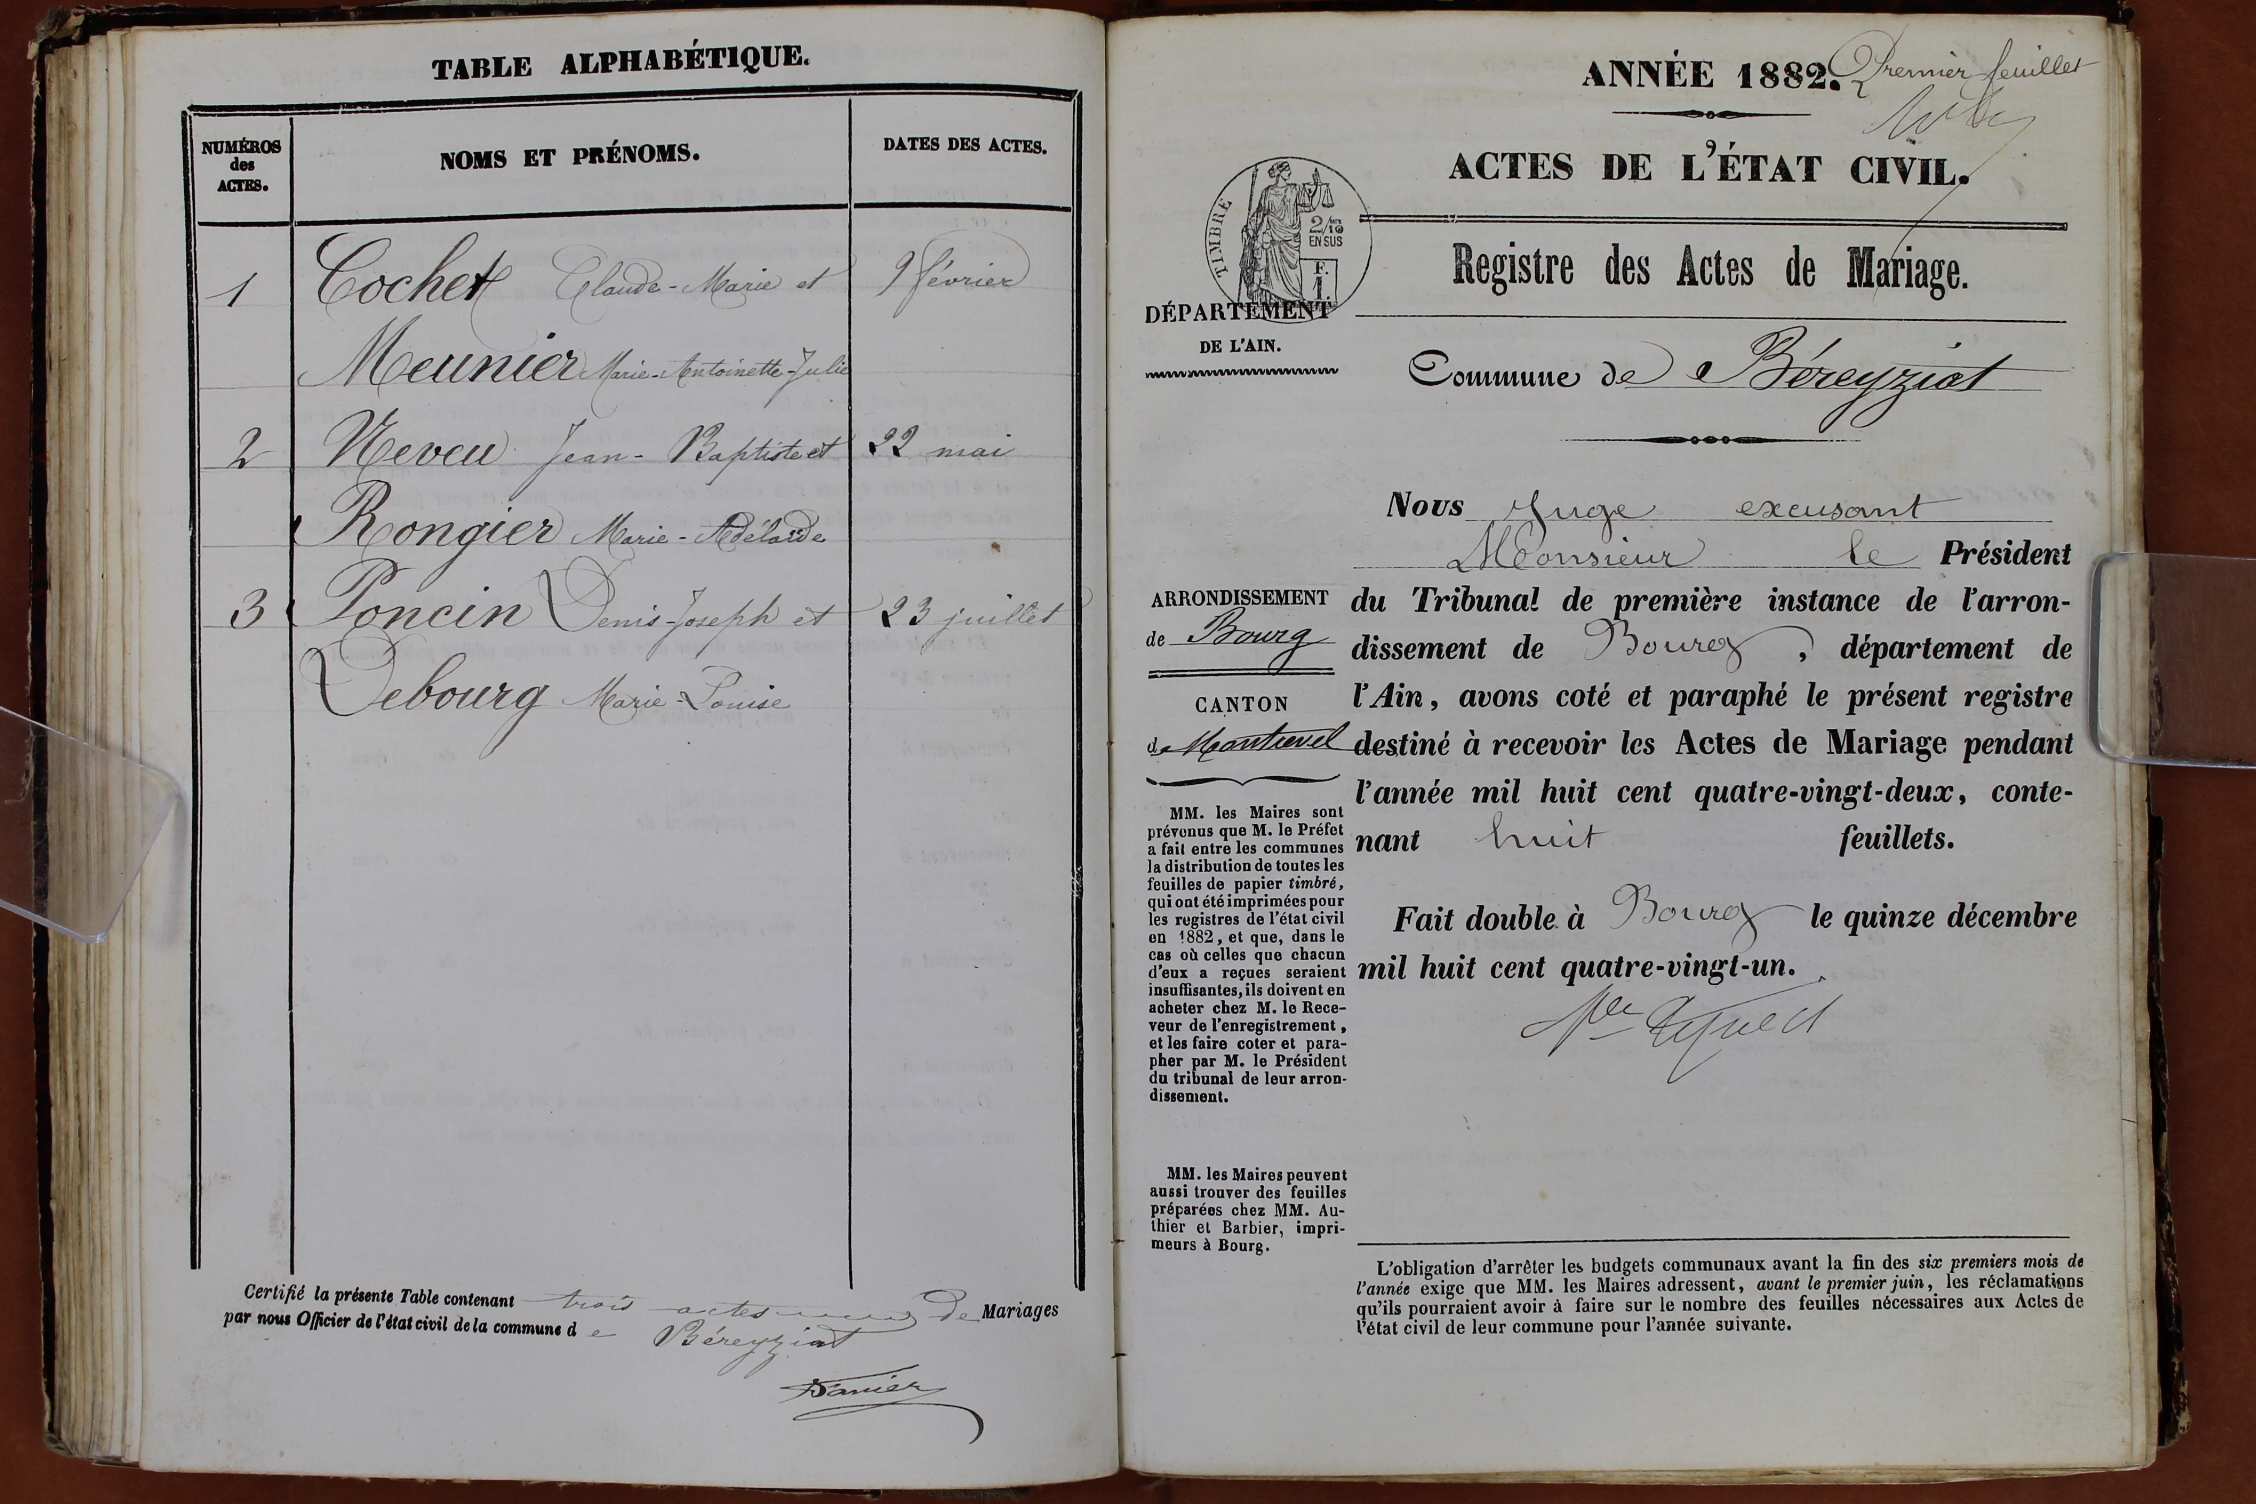 TABLE ALPHABÉTIQUE.
NUMÉROS
des
ACTES.
NOMS ET PRÉNOMS.
DATES DES ACTES.
1 Cochet Claude-Marie et 9 février
Meunier Marie-Antoinette-Julie
2 Neveu Jean-Baptiste et 22 mai
Rongier Marie-Adélaïde
3 Poncin Denis-Joseph et 23 juillet
Debourg Marie-Louise
Certifié la présente Table contenant trois actes de Mariages
par nous Officier de l'état civil de la commune de Béreyziat
ANNÉE 1882.
Premier feuillet
ACTES DE L'ÉTAT CIVIL.
TIMBRE
2/10
EN SUS
F.
1.
Registre des Actes de Mariage.
DÉPARTEMENT
DE L'AIN.
Commune de Béreyziat
Nous Juge excusant
Monsieur le Président
du Tribunal de première instance de l'arron-
dissement de Bourg, département de
l'Ain, avons coté et paraphé le présent registre
destiné à recevoir les Actes de Mariage pendant
l'année mil huit cent quatre-vingt-deux, conte-
nant huit feuillets.
Fait double à Bourg le quinze décembre
mil huit cent quatre-vingt-un.
ARRONDISSEMENT
de Bourg
CANTON
de Montrevel
MM. les Maires sont
prévenus que M. le Préfet
a fait entre les communes
la distribution de toutes les
feuilles de papier timbré,
qui ont été imprimées pour
les registres de l'état civil
en 1882, et que, dans le
cas où celles que chacun
d'eux a reçues seraient
insuffisantes, ils doivent en
acheter chez M. le Rece-
veur de l'enregistrement,
et les faire coter et para-
pher par M. le Président
du tribunal de leur arron-
dissement.
MM. les Maires peuvent
aussi trouver des feuilles
préparées chez MM. Au-
thier et Barbier, impri-
meurs à Bourg.
L'obligation d'arrêter les budgets communaux avant la fin des six premiers mois de
l'année exige que MM. les Maires adressent, avant le premier juin, les réclamations
qu'ils pourraient avoir à faire sur le nombre des feuilles nécessaires aux Actes de
l'état civil de leur commune pour l'année suivante.